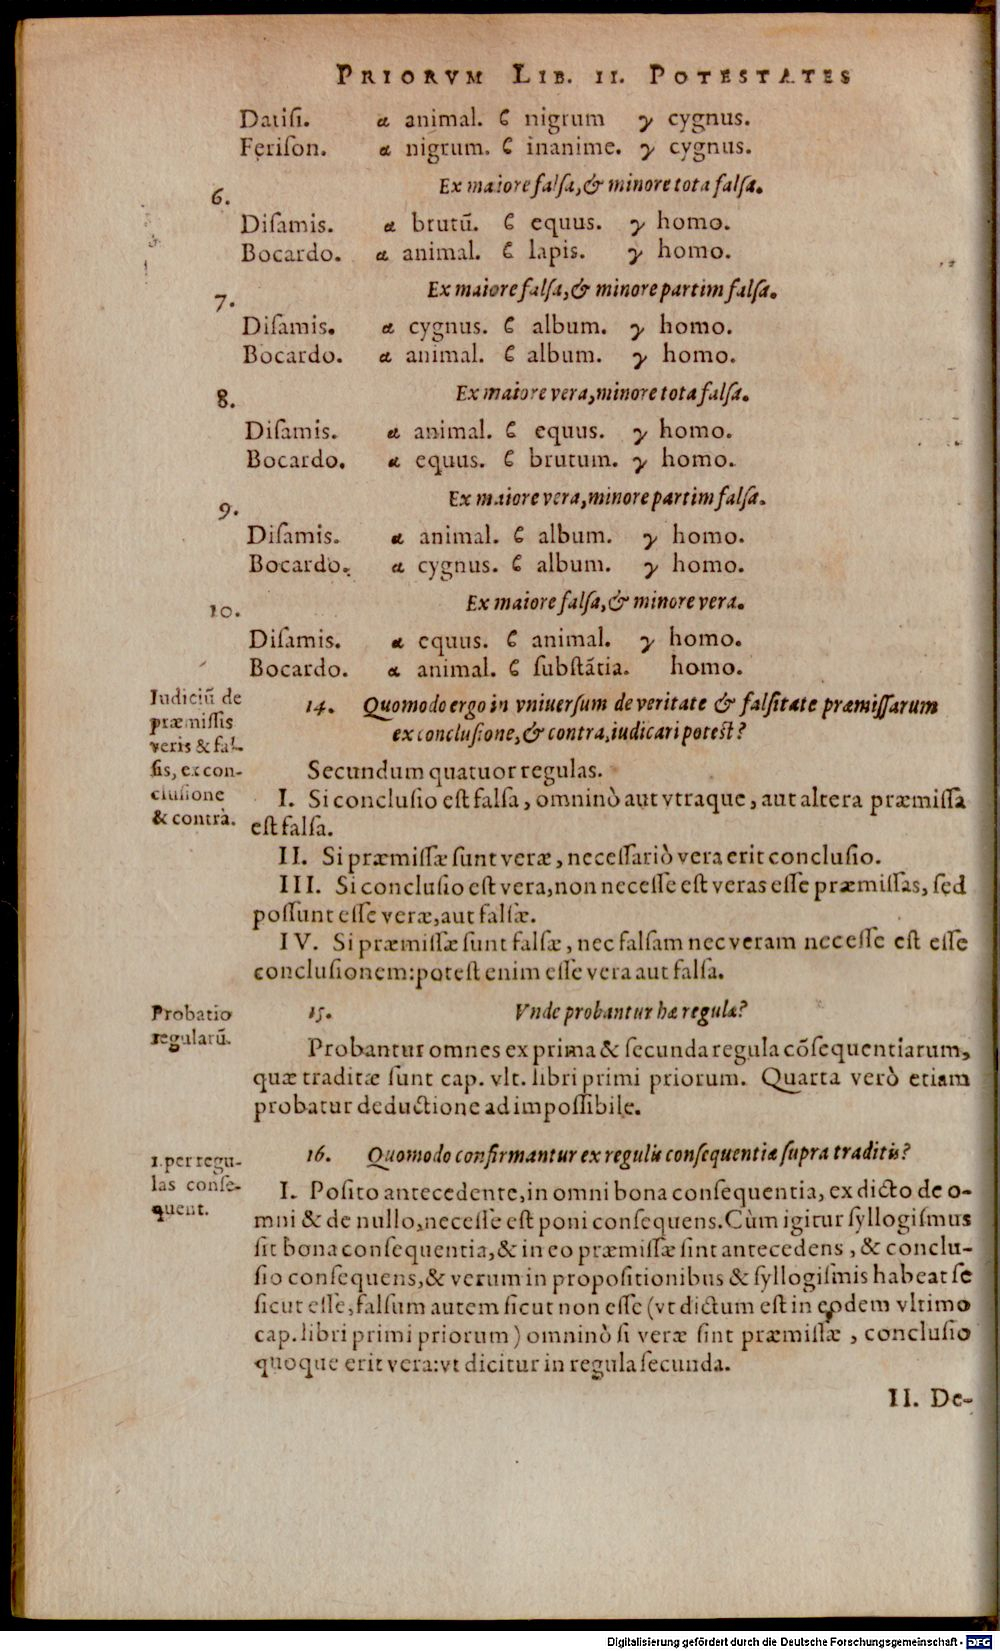 PRIORVM LIB. II. POTESTATES
Datiſi. α animal. ϐ nigrum γ cygnus.
Feriſon. α nigrum. ϐ inanime. γ cygnus.
6. Ex maiore falſa, & minore tota falſa.
Diſamis. α brutũ. ϐ equus. γ homo.
Bocardo. α animal. ϐ lapis. γ homo.
7. Ex maiore falſa, & minore partim falſa.
Diſamis. α cygnus. ϐ album. γ homo.
Bocardo. α animal. ϐ album. γ homo.
8. Ex maiore vera, minore tota falſa.
Diſamis. α animal. ϐ equus. γ homo.
Bocardo. α equus. ϐ brutum. γ homo.
9. Ex maiore vera, minore partim falſa.
Diſamis. α animal. ϐ album. γ homo.
Bocardo. α cygnus. ϐ album. γ homo.
10. Ex maiore falſa, & minore vera.
Diſamis. α equus. ϐ animal. γ homo.
Bocardo. α animal. ϐ ſubſtãtia. homo.
Iudiciũ de
præmiſſis
veris & fal-
ſis, ex con-
cluſione
& contrà.
14. Quomodo ergo in vniuerſum de veritate & falſitate præmiſſarum
ex concluſione, & contra, iudicari poteſt?
Secundum quatuor regulas.
I. Si concluſio eſt falſa, omninò aut vtraque, aut altera præmiſſa
eſt falſa.
II. Si præmiſſæ ſunt veræ, neceſſariò vera erit concluſio.
III. Si concluſio eſt vera, non neceſſe eſt veras eſſe præmiſſas, ſed
poſſunt eſſe veræ, aut falſæ.
IV. Si præmiſſæ ſunt falſæ, nec falſam nec veram neceſſe eſt eſſe
concluſionem: poteſt enim eſſe vera aut falſa.
Probatio
regularũ.
15. Vnde probantur hæ regulæ?
Probantur omnes ex prima & ſecunda regula cõſequentiarum,
quæ traditæ ſunt cap. vlt. libri primi priorum. Quarta verò etiam
probatur deductione ad impoſſibile.
1. per regu-
las conſe-
quent.
16. Quomodo confirmantur ex regulis conſequentiæ ſupra traditis?
I. Poſito antecedente, in omni bona conſequentia, ex dicto de o-
mni & de nullo, neceſſe eſt poni conſequens. Cùm igitur ſyllogiſmus
ſit bona conſequentia, & in eo præmiſſæ ſint antecedens, & conclu-
ſio conſequens, & verum in propoſitionibus & ſyllogiſmis habeat ſe
ſicut eſſe, falſum autem ſicut non eſſe (vt dictum eſt in eodem vltimo
cap. libri primi priorum) omninò ſi veræ ſint præmiſſæ, concluſio
quoque erit vera: vt dicitur in regula ſecunda.
II. De-
Digitalisierung gefördert durch die Deutsche Forschungsgemeinschaft - DFG